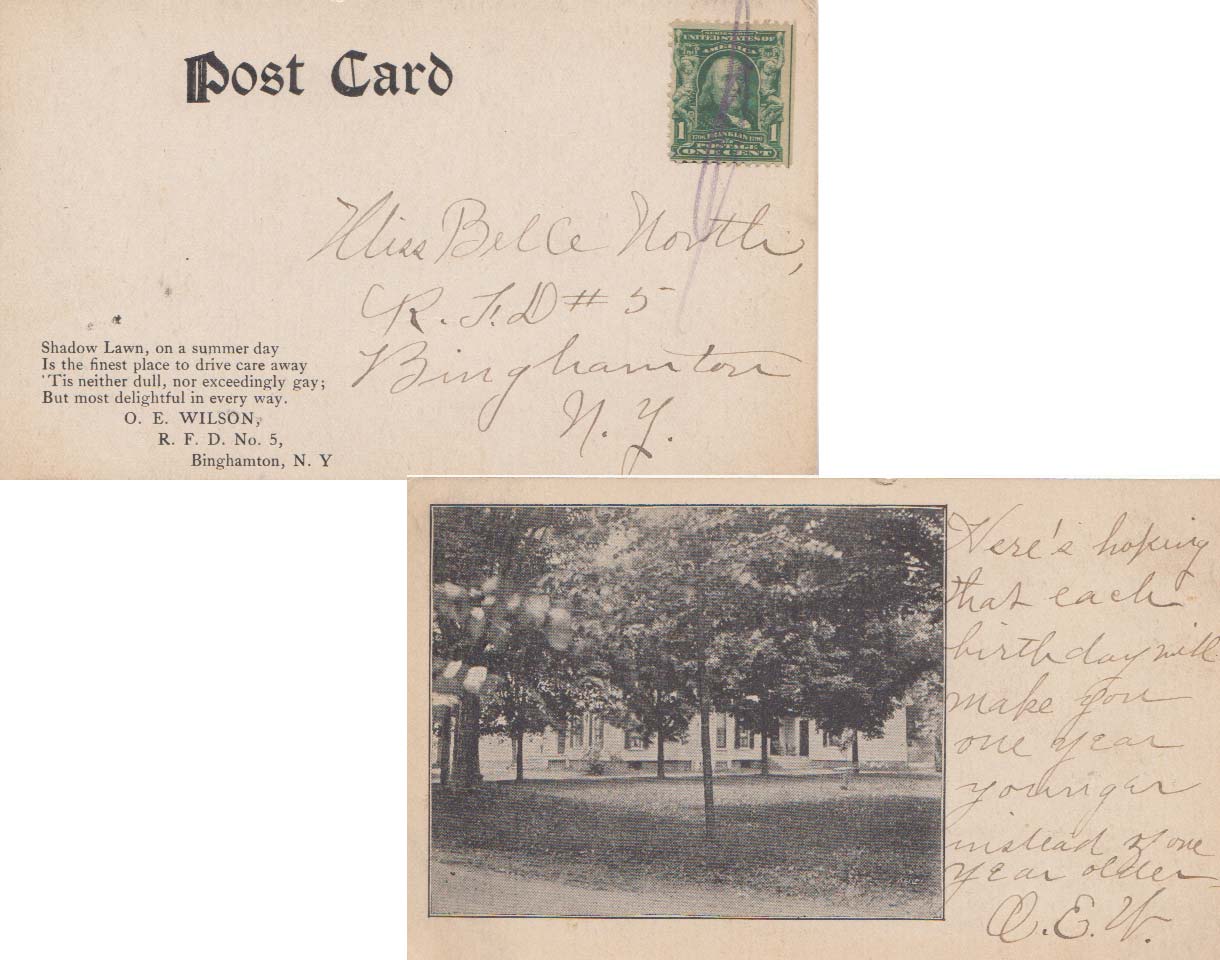 Post Card
SERIES 1902
UNITED STATES OF
AMERICA
1 1706 FRANKLIN 1790 1
POSTAGE
ONE CENT
Miss Belle North,
R. F. D # 5
Binghamton
N. Y.
Shadow Lawn, on a summer day
Is the finest place to drive care away
'Tis neither dull, nor exceedingly gay;
But most delightful in every way.
O. E. WILSON,
R. F. D. No. 5,
Binghamton, N. Y
Here's hoping
that each
birthday will
make you
one year
younger
instead of one
year older
O. E. W.